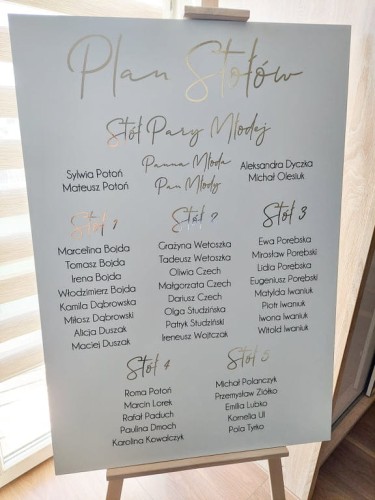 Plan Stołów
Stół Pary Młodej
Sylwia Potoń
Mateusz Potoń
Panna Młoda
Pan Młody
Aleksandra Dyczka
Michał Olesiuk
Stół 1
Marcelina Bojda
Tomasz Bojda
Irena Bojda
Włodzimierz Bojda
Kamila Dąbrowska
Miłosz Dąbrowski
Alicja Duszak
Maciej Duszak
Stół 2
Grażyna Wetoszka
Tadeusz Wetoszka
Oliwia Czech
Małgorzata Czech
Dariusz Czech
Olga Studzińska
Patryk Studziński
Ireneusz Wojtczak
Stół 3
Ewa Porębska
Mirosław Porębski
Lidia Porębska
Eugeniusz Porębski
Matylda Iwaniuk
Piotr Iwaniuk
Iwona Iwaniuk
Witold Iwaniuk
Stół 4
Roma Potoń
Marcin Lorek
Rafał Paduch
Paulina Dmoch
Karolina Kowalczyk
Stół 5
Michał Polanczyk
Przemysław Ziółko
Emilia Lubko
Kornelia Ul
Pola Tyrko